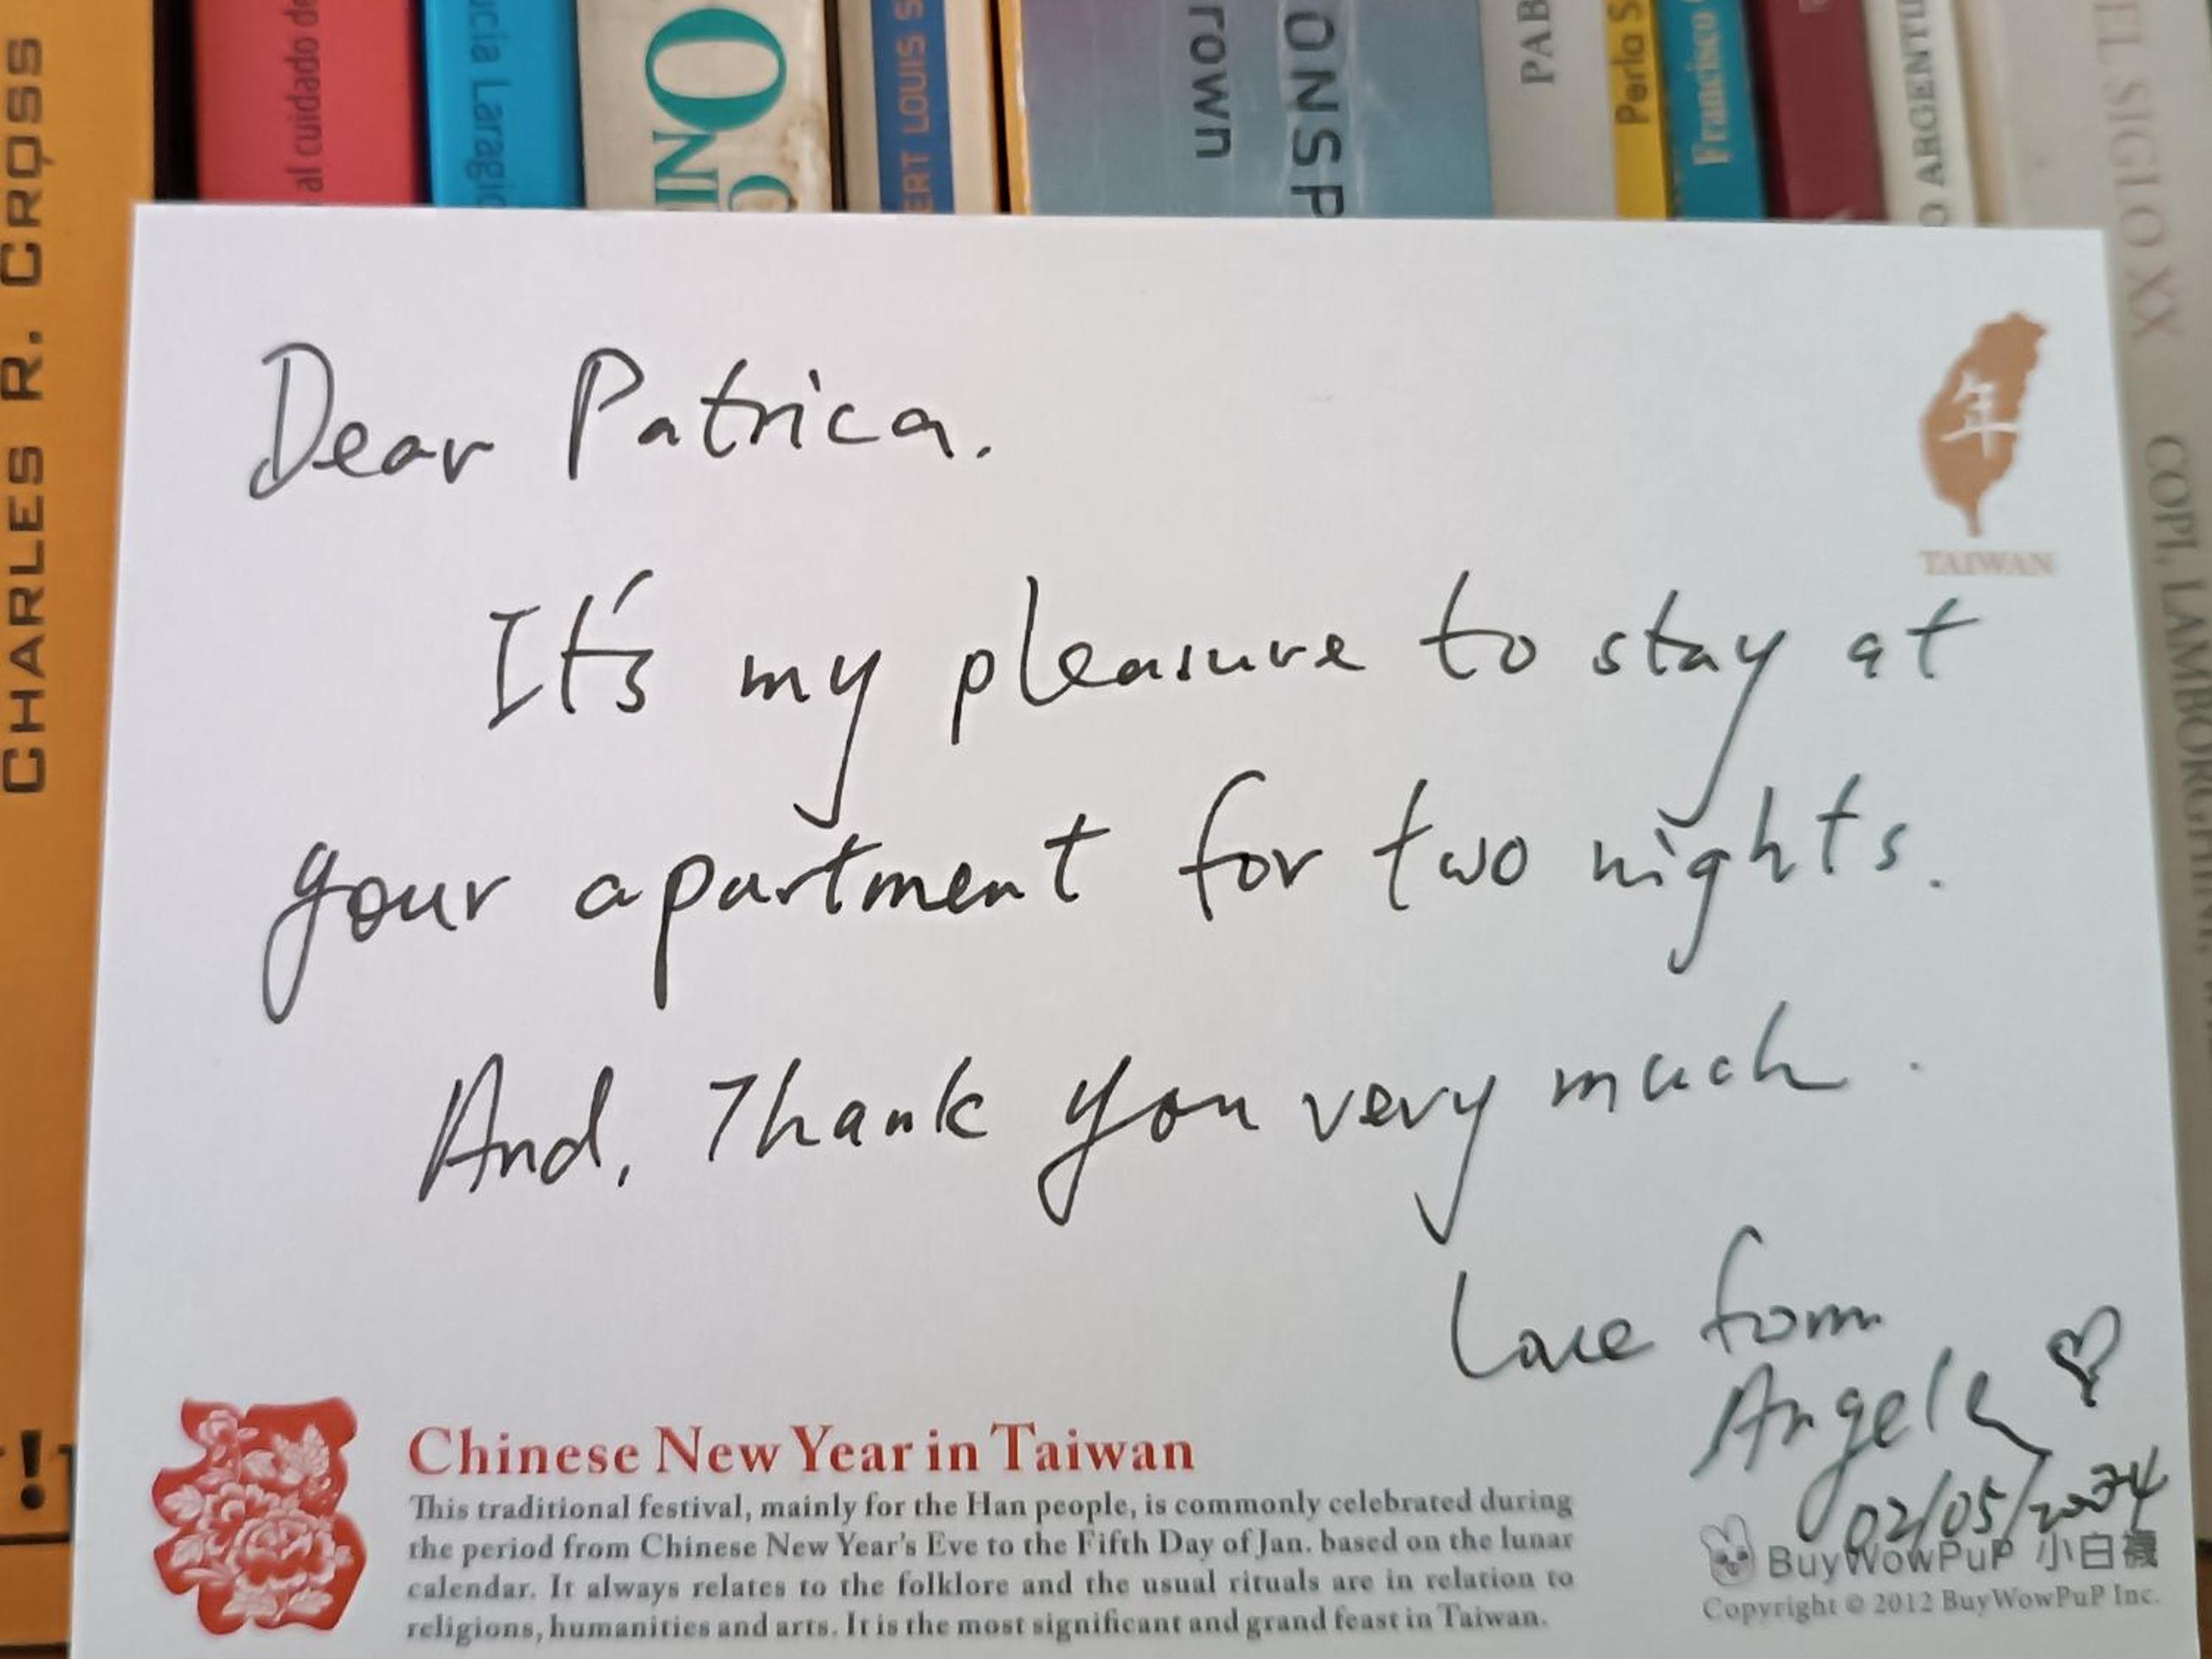 CHARLES R. CROSS
al cuidado de
ucia Laragi
INO
ERT LOUIS S
rown
ONSP
PAB
Perla S
Francisco
O ARGENTI
EL SIGLO XX
COPI, LAMBORGHINI,
Dear Patrica.
年
TAIWAN
It's my pleasure to stay at
your apartment for two nights.
And, Thank you very much.
Love form
Angela
02/05/2024
Chinese New Year in Taiwan
This traditional festival, mainly for the Han people, is commonly celebrated during
the period from Chinese New Year's Eve to the Fifth Day of Jan. based on the lunar
calendar. It always relates to the folklore and the usual rituals are in relation to
religions, humanities and arts. It is the most significant and grand feast in Taiwan.
BuyWowPuP 小白襪
Copyright © 2012 BuyWowPuP Inc.